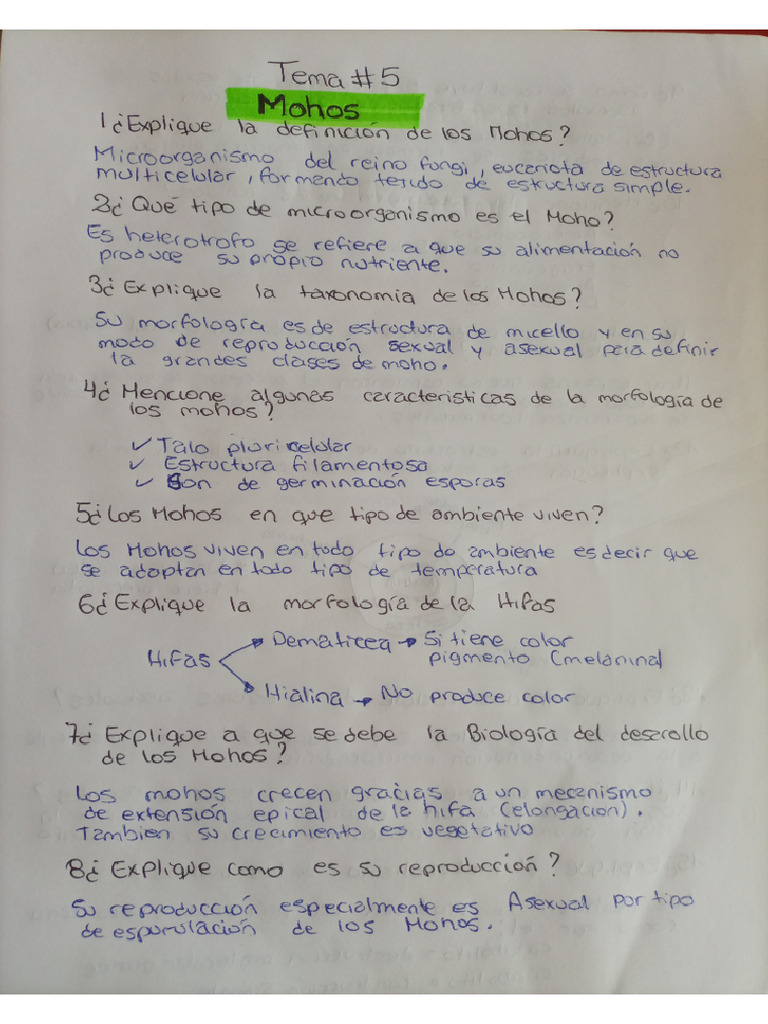 Tema #5
Mohos
1¿Explique la definición de los Mohos?
Microorganismo del reino fungi, eucariota de estructura
multicelular, formando tejido de estructura simple.
2¿Qué tipo de microorganismo es el Moho?
Es heterotrofo se refiere a que su alimentación no
produce su propio nutriente.
3¿Explique la taxonomia de los Mohos?
Su morfología es de estructura de micelio y en su
modo de reproducción sexual y asexual para definir
la grandes clases de moho.
4¿ Mencione algunas caracteristicas de la morfología de
los mohos?
✓ Talo pluricelular
✓ Estructura filamentosa
✓ Son de germinación esporas
5¿Los Mohos en que tipo de ambiente viven?
Los Mohos viven en todo tipo do ambiente es decir que
se adaptan en todo tipo de temperatura
6¿Explique la morfología de la Hifas
Hifas
Dematicea → Si tiene color
pigmento (melanina)
Hialina → No produce color
7¿ Explique a que se debe la Biología del desarollo
de los Mohos?
Los mohos crecen gracias a un mecanismo
de extensión epical de la hifa (elongacion).
Tambien su crecimiento es vegetativo
8¿ Explique como es su reproducción?
Su reproducción especialmente es Asexual por tipo
de esporulación de los Mohos.